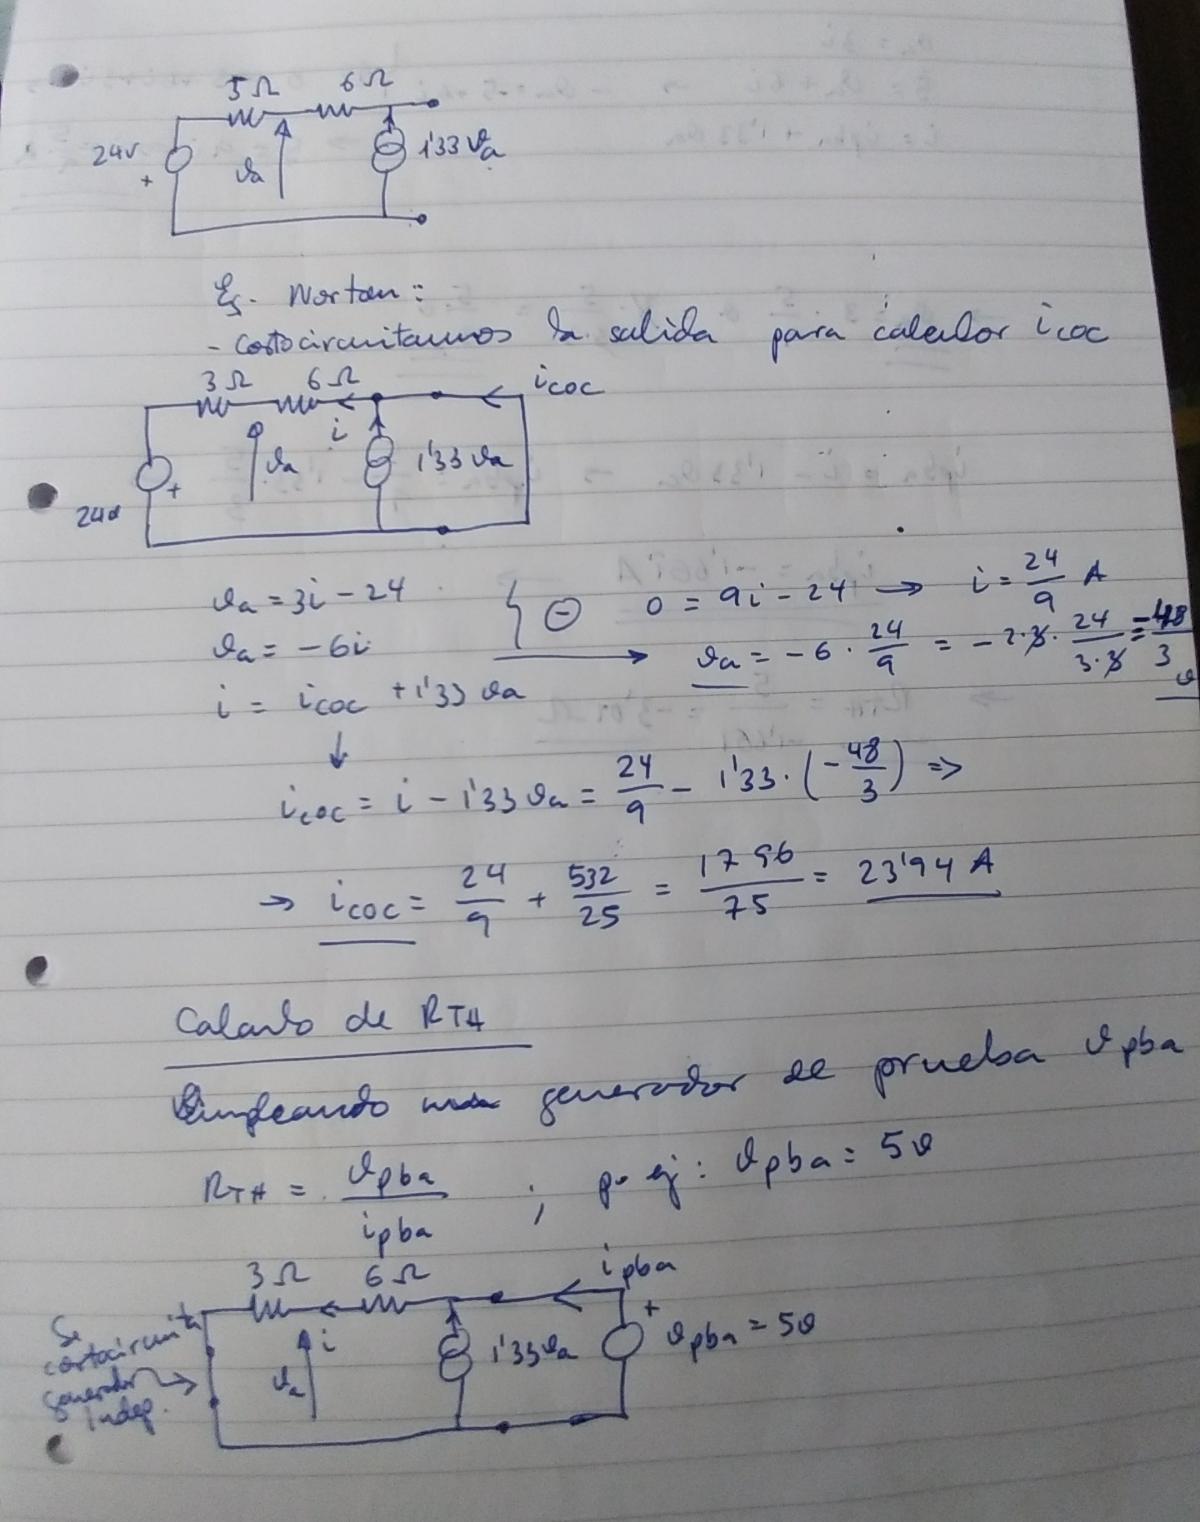 3Ω 6Ω
24v
+
va
1'33 va
Eq. Norton:
- cortocircuitamos la salida para calcular icoc
3Ω 6Ω icoc
i
va 1'33 va
+
24v
va = 3i - 24
va = -6i
i = icoc + 1'33 va
⊖ 0 = 9i - 24 → i = 24/9 A
va = -6 · 24/9 = -2·3 · 24/3·3 = -48/3 v
↓
icoc = i - 1'33 va = 24/9 - 1'33 · (-48/3) ⇒
→ icoc = 24/9 + 532/25 = 1796/75 = 23'94 A
Calculo de RTH
Empleando generador de prueba vpba
RTH = vpba/ipba ; p. ej: vpba = 5v
3Ω 6Ω ipba
i
va 1'33 va
+
vpba = 5v
Se
cortocircuita
generador
Indep.